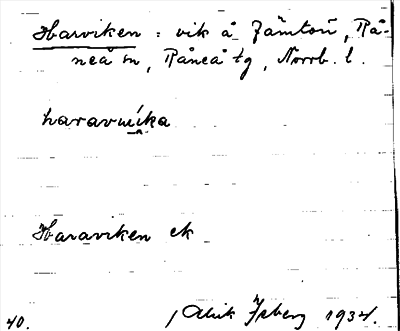 Harviken : vik å Jämtön, Rå-
neå sn, Råneå tg, Norrb. l.
haravı̄ka
Haraviken ek
40. Alrik Isberg 1934.